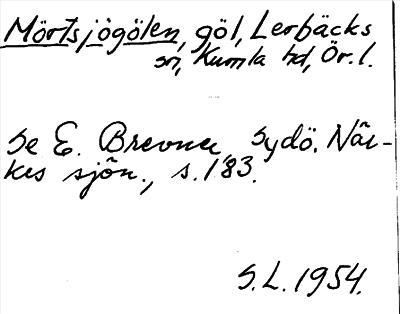 Mörtsjögölen, göl, Lerbäcks
sn, Kumla hd, Ör. l.
Se E. Brevner, Sydö. När-
kes sjön., s. 183.
S.L. 1954.